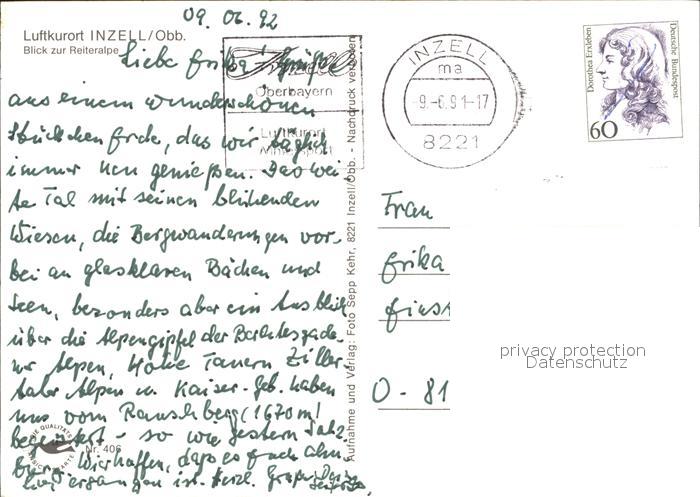 09. 06. 92
Luftkurort INZELL/Obb.
Blick zur Reiteralpe
Liebe Erika! Grüße
aus einem wunderschönen
Stückchen Erde, das wir täglich
immer neu genießen. Das wei-
te Tal mit seinen blühenden
Wiesen, die Bergwanderungen vor-
bei an glasklaren Bächen und
Seen, besonders aber ein Ausblick
über die Alpengipfel der Berchtesgade-
ner Alpen, Hohe Tauern Ziller-
taler Alpen u. Kaiser-Geb. haben
uns vom Rauschberg (1670 m)
begeistert - so wie gestern Salz-
burg. Wir hoffen, dass es Euch allen
ergangen ist. Herzl.
Inzell
Oberbayern
Luftkurort
Wintersport
INZELL
ma
-9.-6.91-17
8221
Dorothea Erxleben
Deutsche Bundespost
60
Aufnahme und Verlag: Foto Sepp Kehr, 8221 Inzell/Obb. - Nachdruck verboten
Nr. 406
Frau
Erika
O - 81
privacy protection
Datenschutz